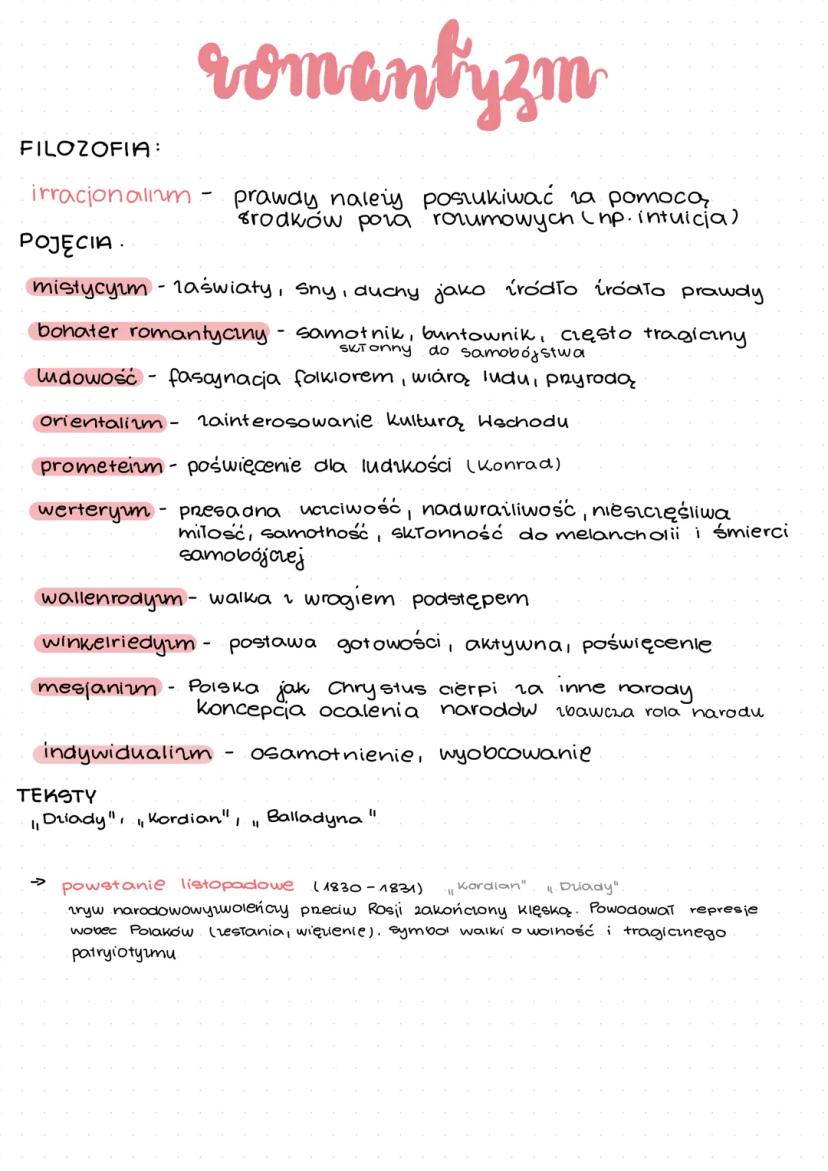 romantyzm
FILOZOFIA:
irracjonalizm - prawdy należy poszukiwać za pomocą
środków poza rozumowych (np. intuicja)
POJĘCIA.
mistycyzm - zaświaty, sny, duchy jako źródło źródło prawdy
bohater romantyczny - samotnik, buntownik, często tragiczny
skłonny do samobójstwa
ludowość - fascynacja folklorem, wiarą ludu, przyrodą
orientalizm - zainterosowanie kulturą Wschodu
prometeizm - poświęcenie dla ludzkości (Konrad)
werteryzm - przesadna uczciwość, nadwrażliwość, nieszczęśliwa
miłość, samotność, skłonność do melancholii i śmierci
samobójczej
wallenrodyzm - walka z wrogiem podstępem
winkelriedyzm - postawa gotowości, aktywna, poświęcenie
mesjanizm - Polska jak Chrystus cierpi za inne narody
koncepcja ocalenia narodów zbawcza rola narodu
indywidualizm - osamotnienie, wyobcowanie
TEKSTY
„Dziady", „Kordian", „Balladyna"
→ powstanie listopadowe (1830-1831) „Kordian" „Dziady"
zryw narodowowyzwoleńczy przeciw Rosji zakończony klęską. Powodował represje
wobec Polaków (zesłania, więzienie). Symbol walki o wolność i tragicznego
patryiotyzmu